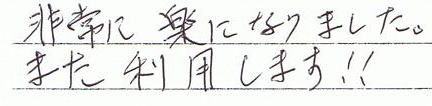 非常に楽になりました。
また利用します!!